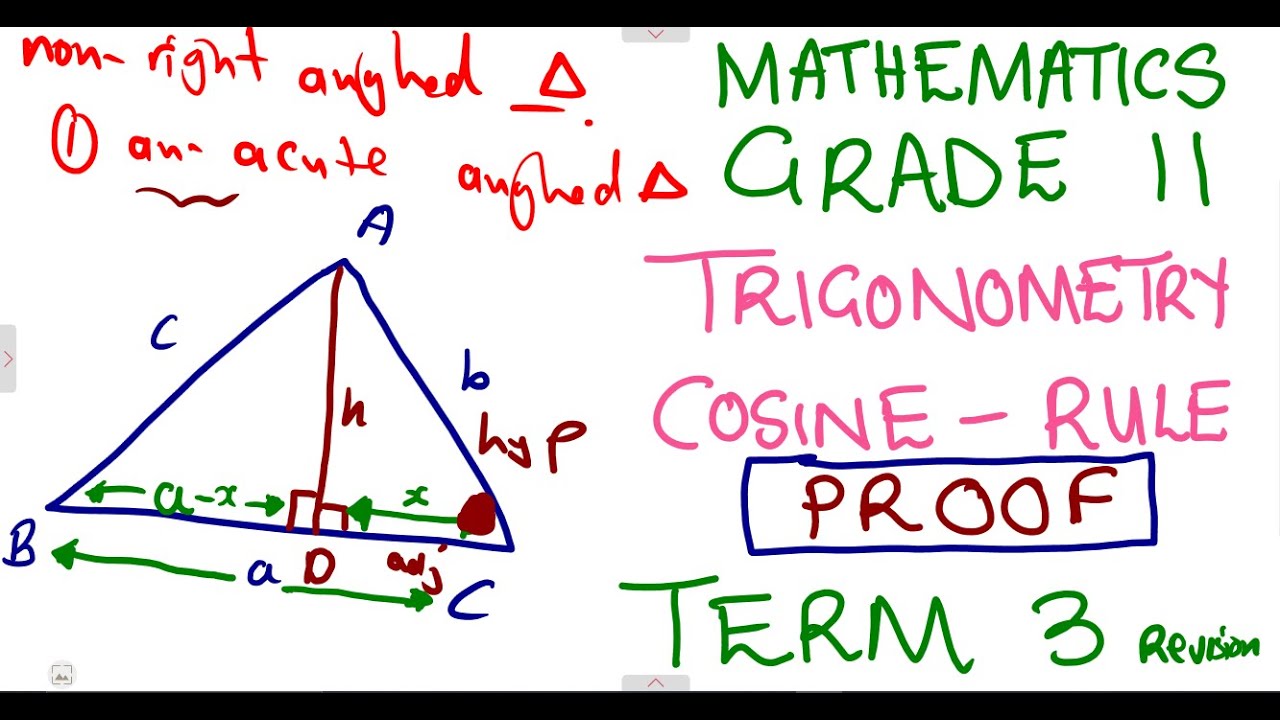 non-right anghed Δ.
① an- acute anghed Δ
A
c
b
h
hyp
a-x
x
B
a
D
adj
C
MATHEMATICS
GRADE 11
TRIGONOMETRY
COSINE - RULE
PROOF
TERM 3 Revision